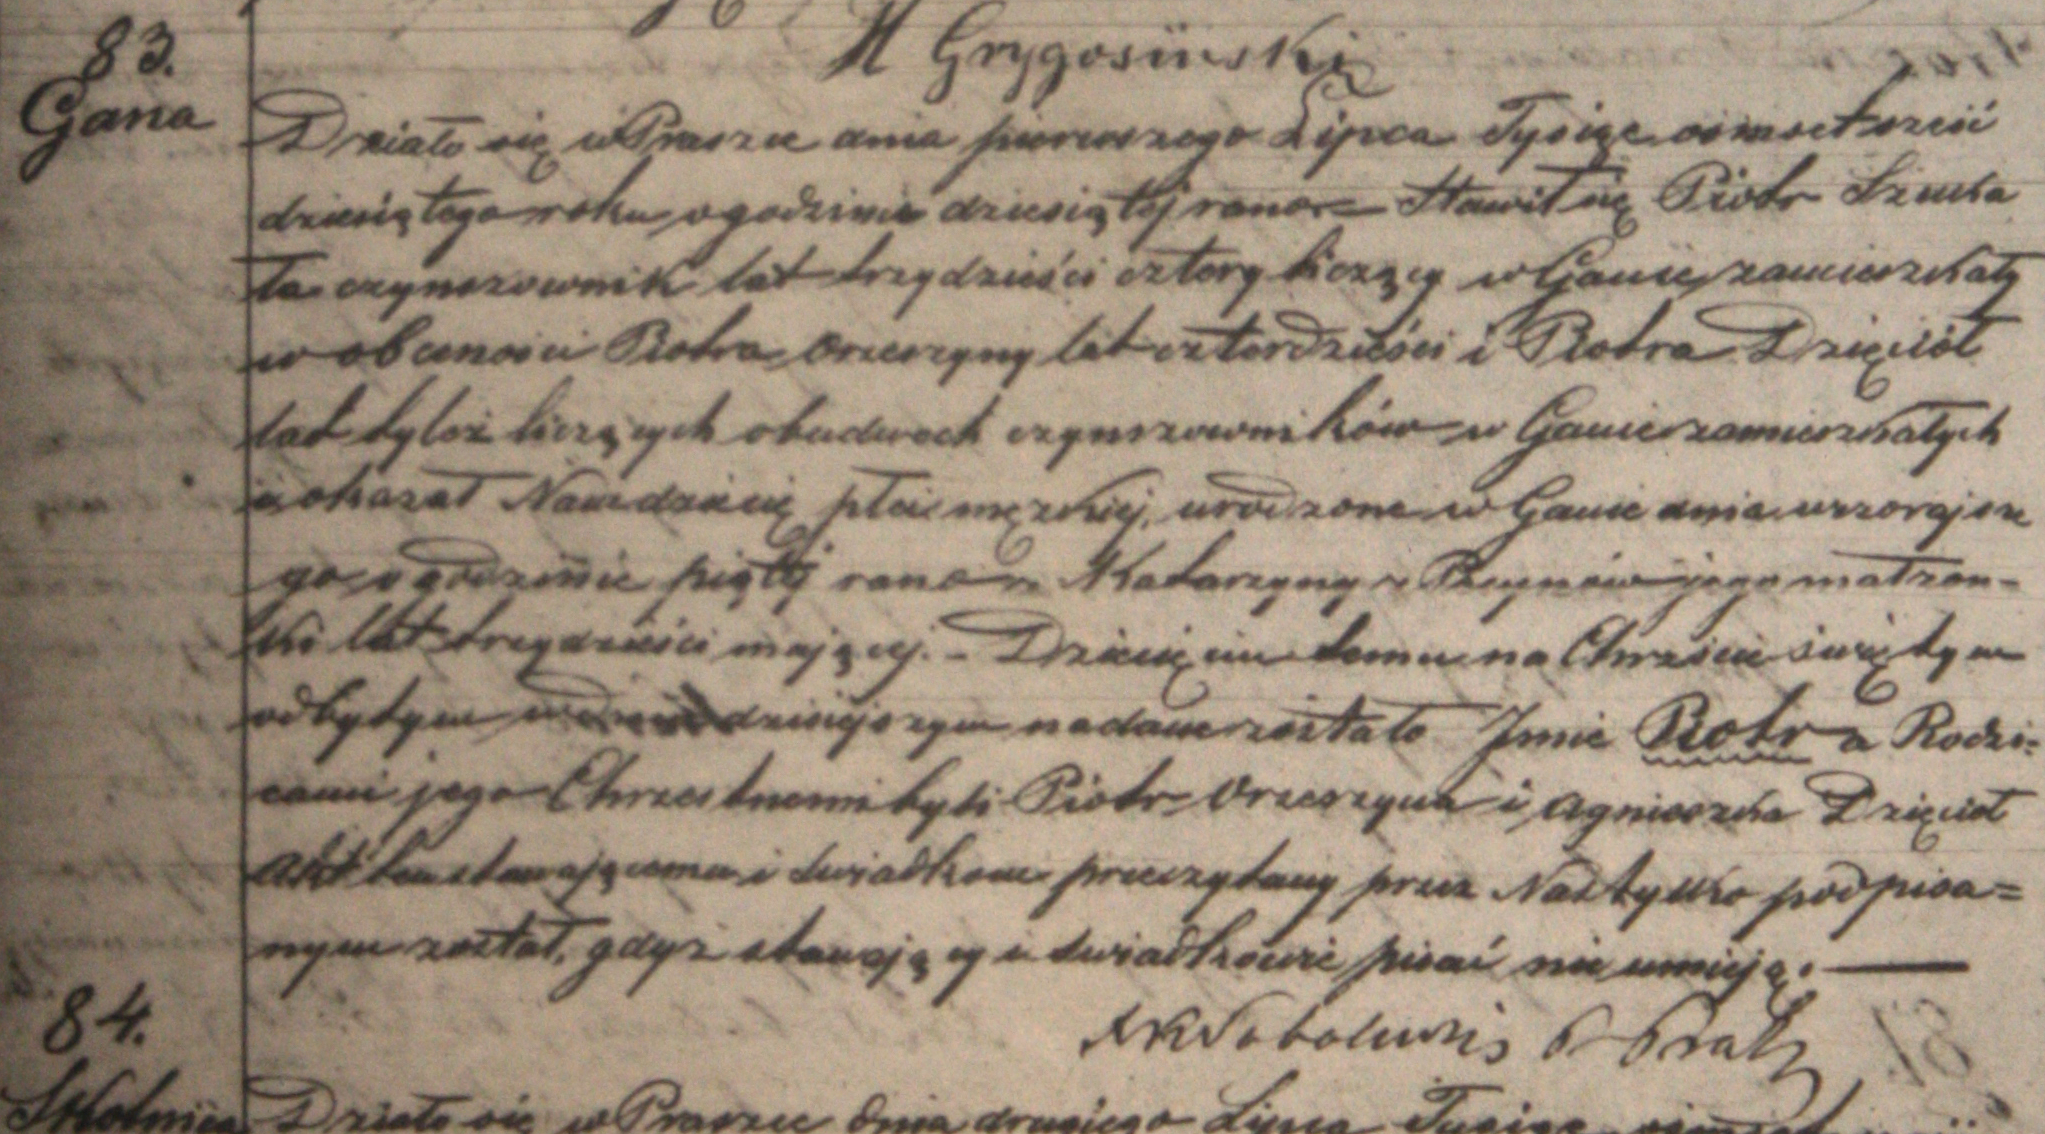 83.
Gana
M Grygosiński
Działo się w Praszce dnia pierwszego Lipca Tysiąc osmset sześć
dziesiątego roku o godzinie dziesiątej rano Stawił się Piotr Szmka
ła czynszownik lat trzydzieści cztery liczący w Ganie zamieszkały
w obecności Piotra Orzeszyny lat czterdzieści i Piotra Dzięcioł
lat tyleż liczących obudwoch czynszowników w Ganie zamieszkałych
i okazał Nam dziecię płci męzkiej, urodzone w Ganie dnia wczorajsze
go o godzinie piątej rano z Katarzyny z jego małżon-
ki lat trzydzieści mającej. – Dziecięciu temu na Chrzcie świętym
odbytym w dniu dzisiejszym nadane zostało Imie Piotr a Rodzi=
cami jego Chrzestnemi byli Piotr Orzeszyna i Agnieszka Dzięcioł
Akt ten stawającemu i świadkom przeczytany przez Nas tylko podpisa=
nym został, gdyż stawający i świadkowie pisać nie umieją. —
Sobolewski
84.
Działo się w Praszce dnia drugiego Lipca Tysiąc